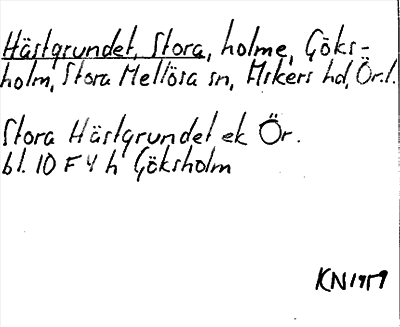 Hästgrundet, Stora, holme, Göks-
holm, Stora Mellösa sn, Askers hd, Ör.l.
Stora Hästgrundet ek Ör.
bl. 10 F 4 h Göksholm
KN1959